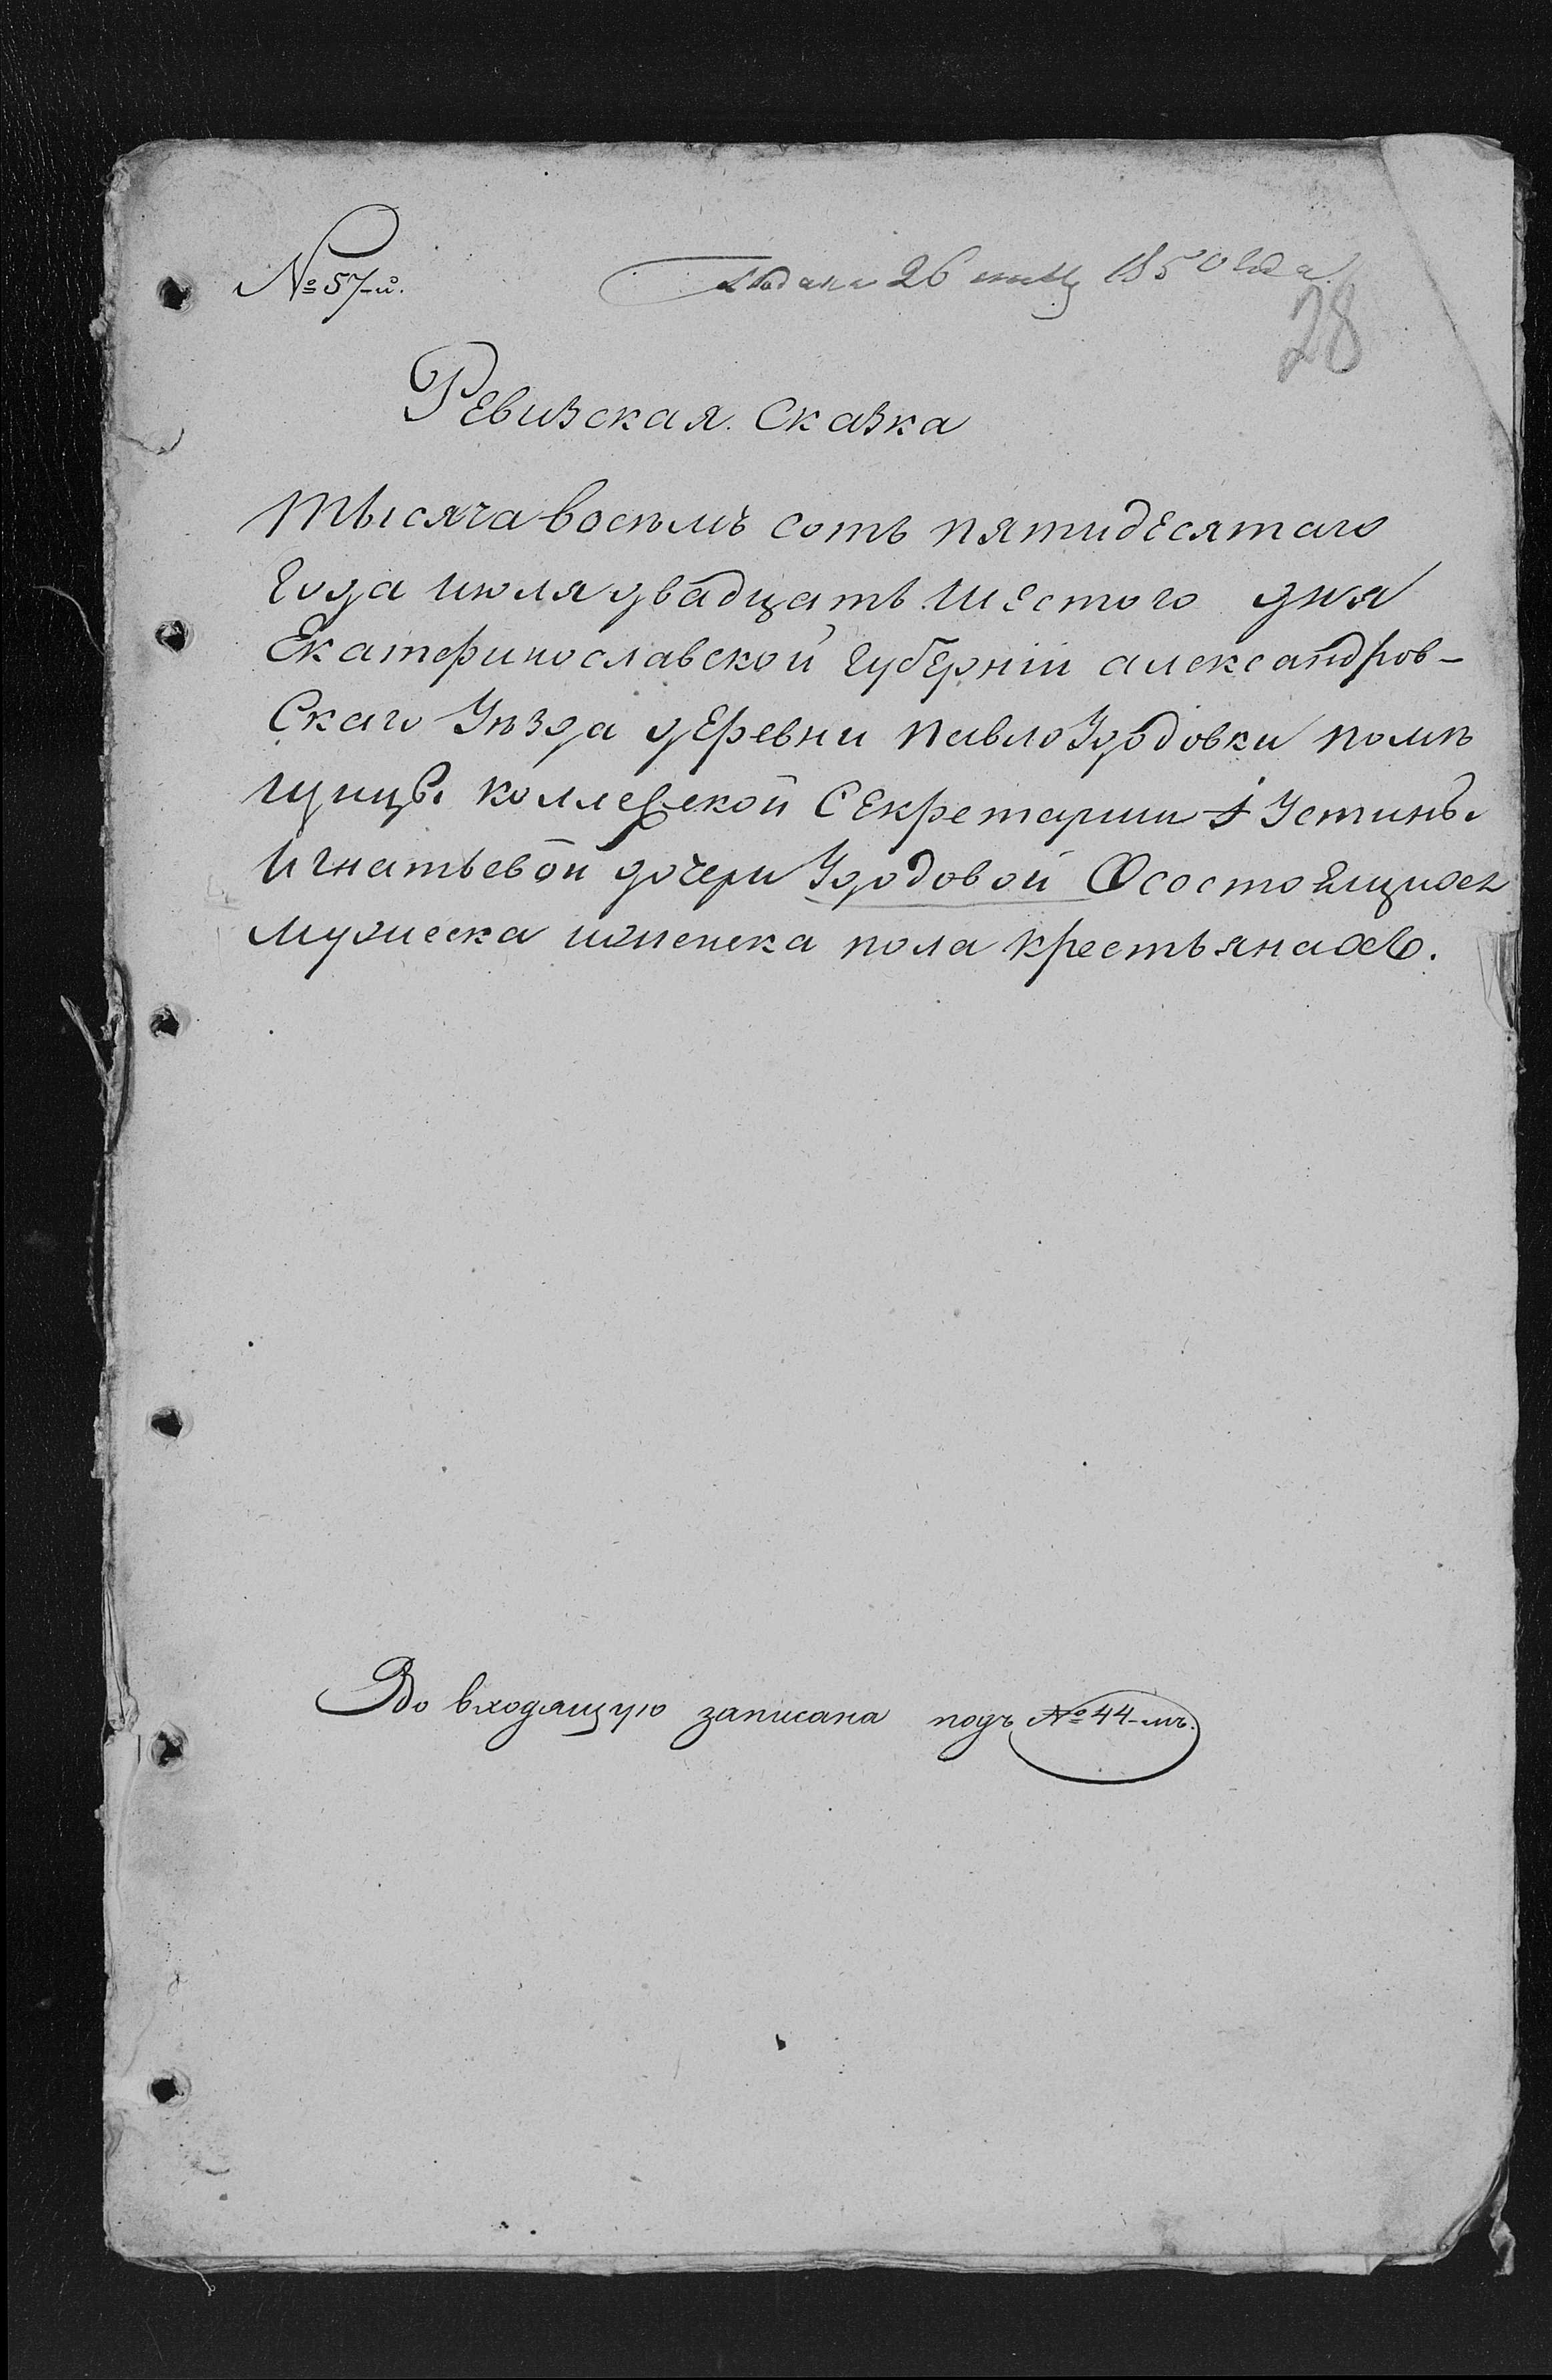 № 57-й.
Подана 26 июля 1850 года
28
Ревизская Сказка
тысяча восемь сотъ пятидесятаго
года июля двадцать шестого дня
Екатеринославской губерніи александров-
Скаго Уѣзда деревни Павло Удодовки помѣ
щицы коллежской Секретарши Устины
Игнатьевой дочери Удодовой О состоящихъ
мужеска иженска пола крестьянахъ.
Во входящую записана подъ № 44-мъ.